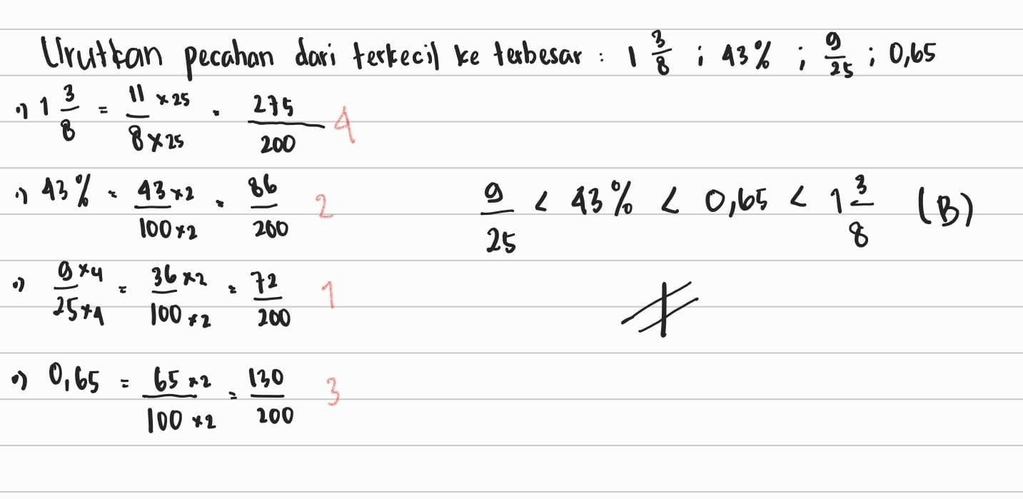 Urutkan pecahan dari terkecil ke terbesar : 1 3/8 ; 43% ; 9/25 ; 0,65
•) 1 3/8 = 11 × 25 / 8 × 25 = 275/200 4
•) 43% = 43 × 2 / 100 × 2 = 86/200 2
9/25 < 43% < 0,65 < 1 3/8 (B)
•) 9 × 4 / 25 × 4 = 36 × 2 / 100 × 2 = 72/200 1
•) 0,65 = 65 × 2 / 100 × 2 = 130/200 3